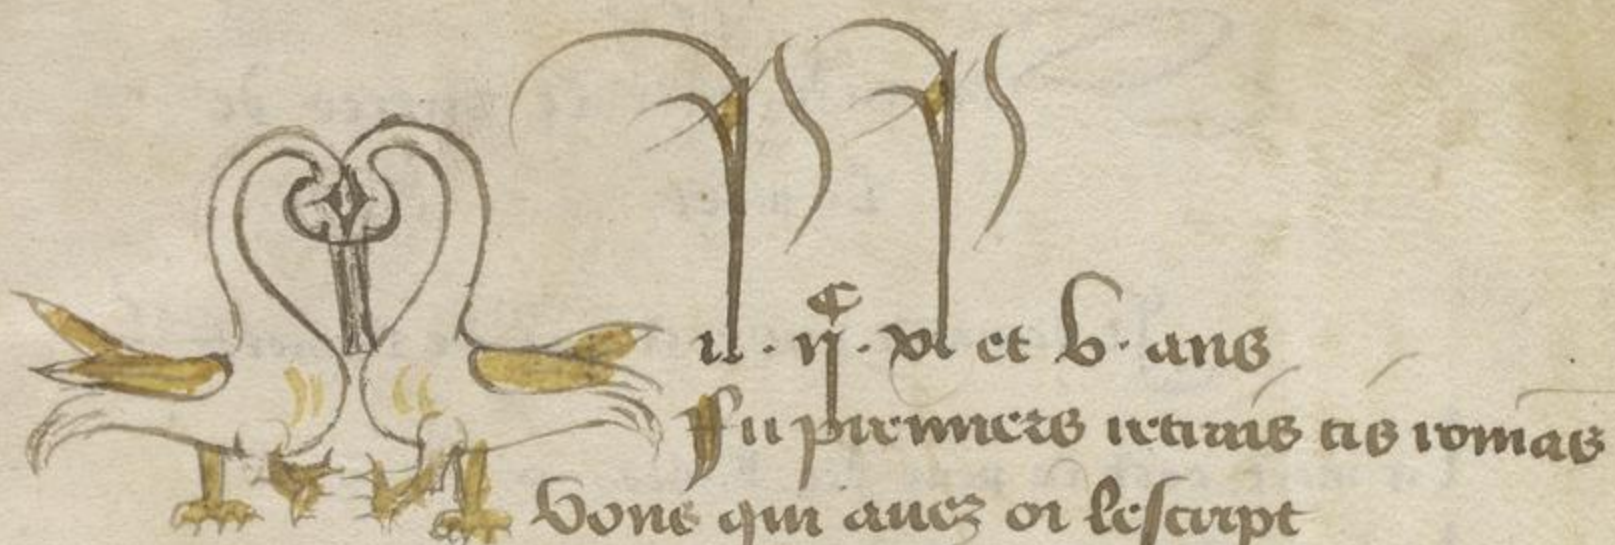 il · ijᶜ · xl et v · ans
Fu premiers retrais cis romãs
Vous qui auez oi lescript